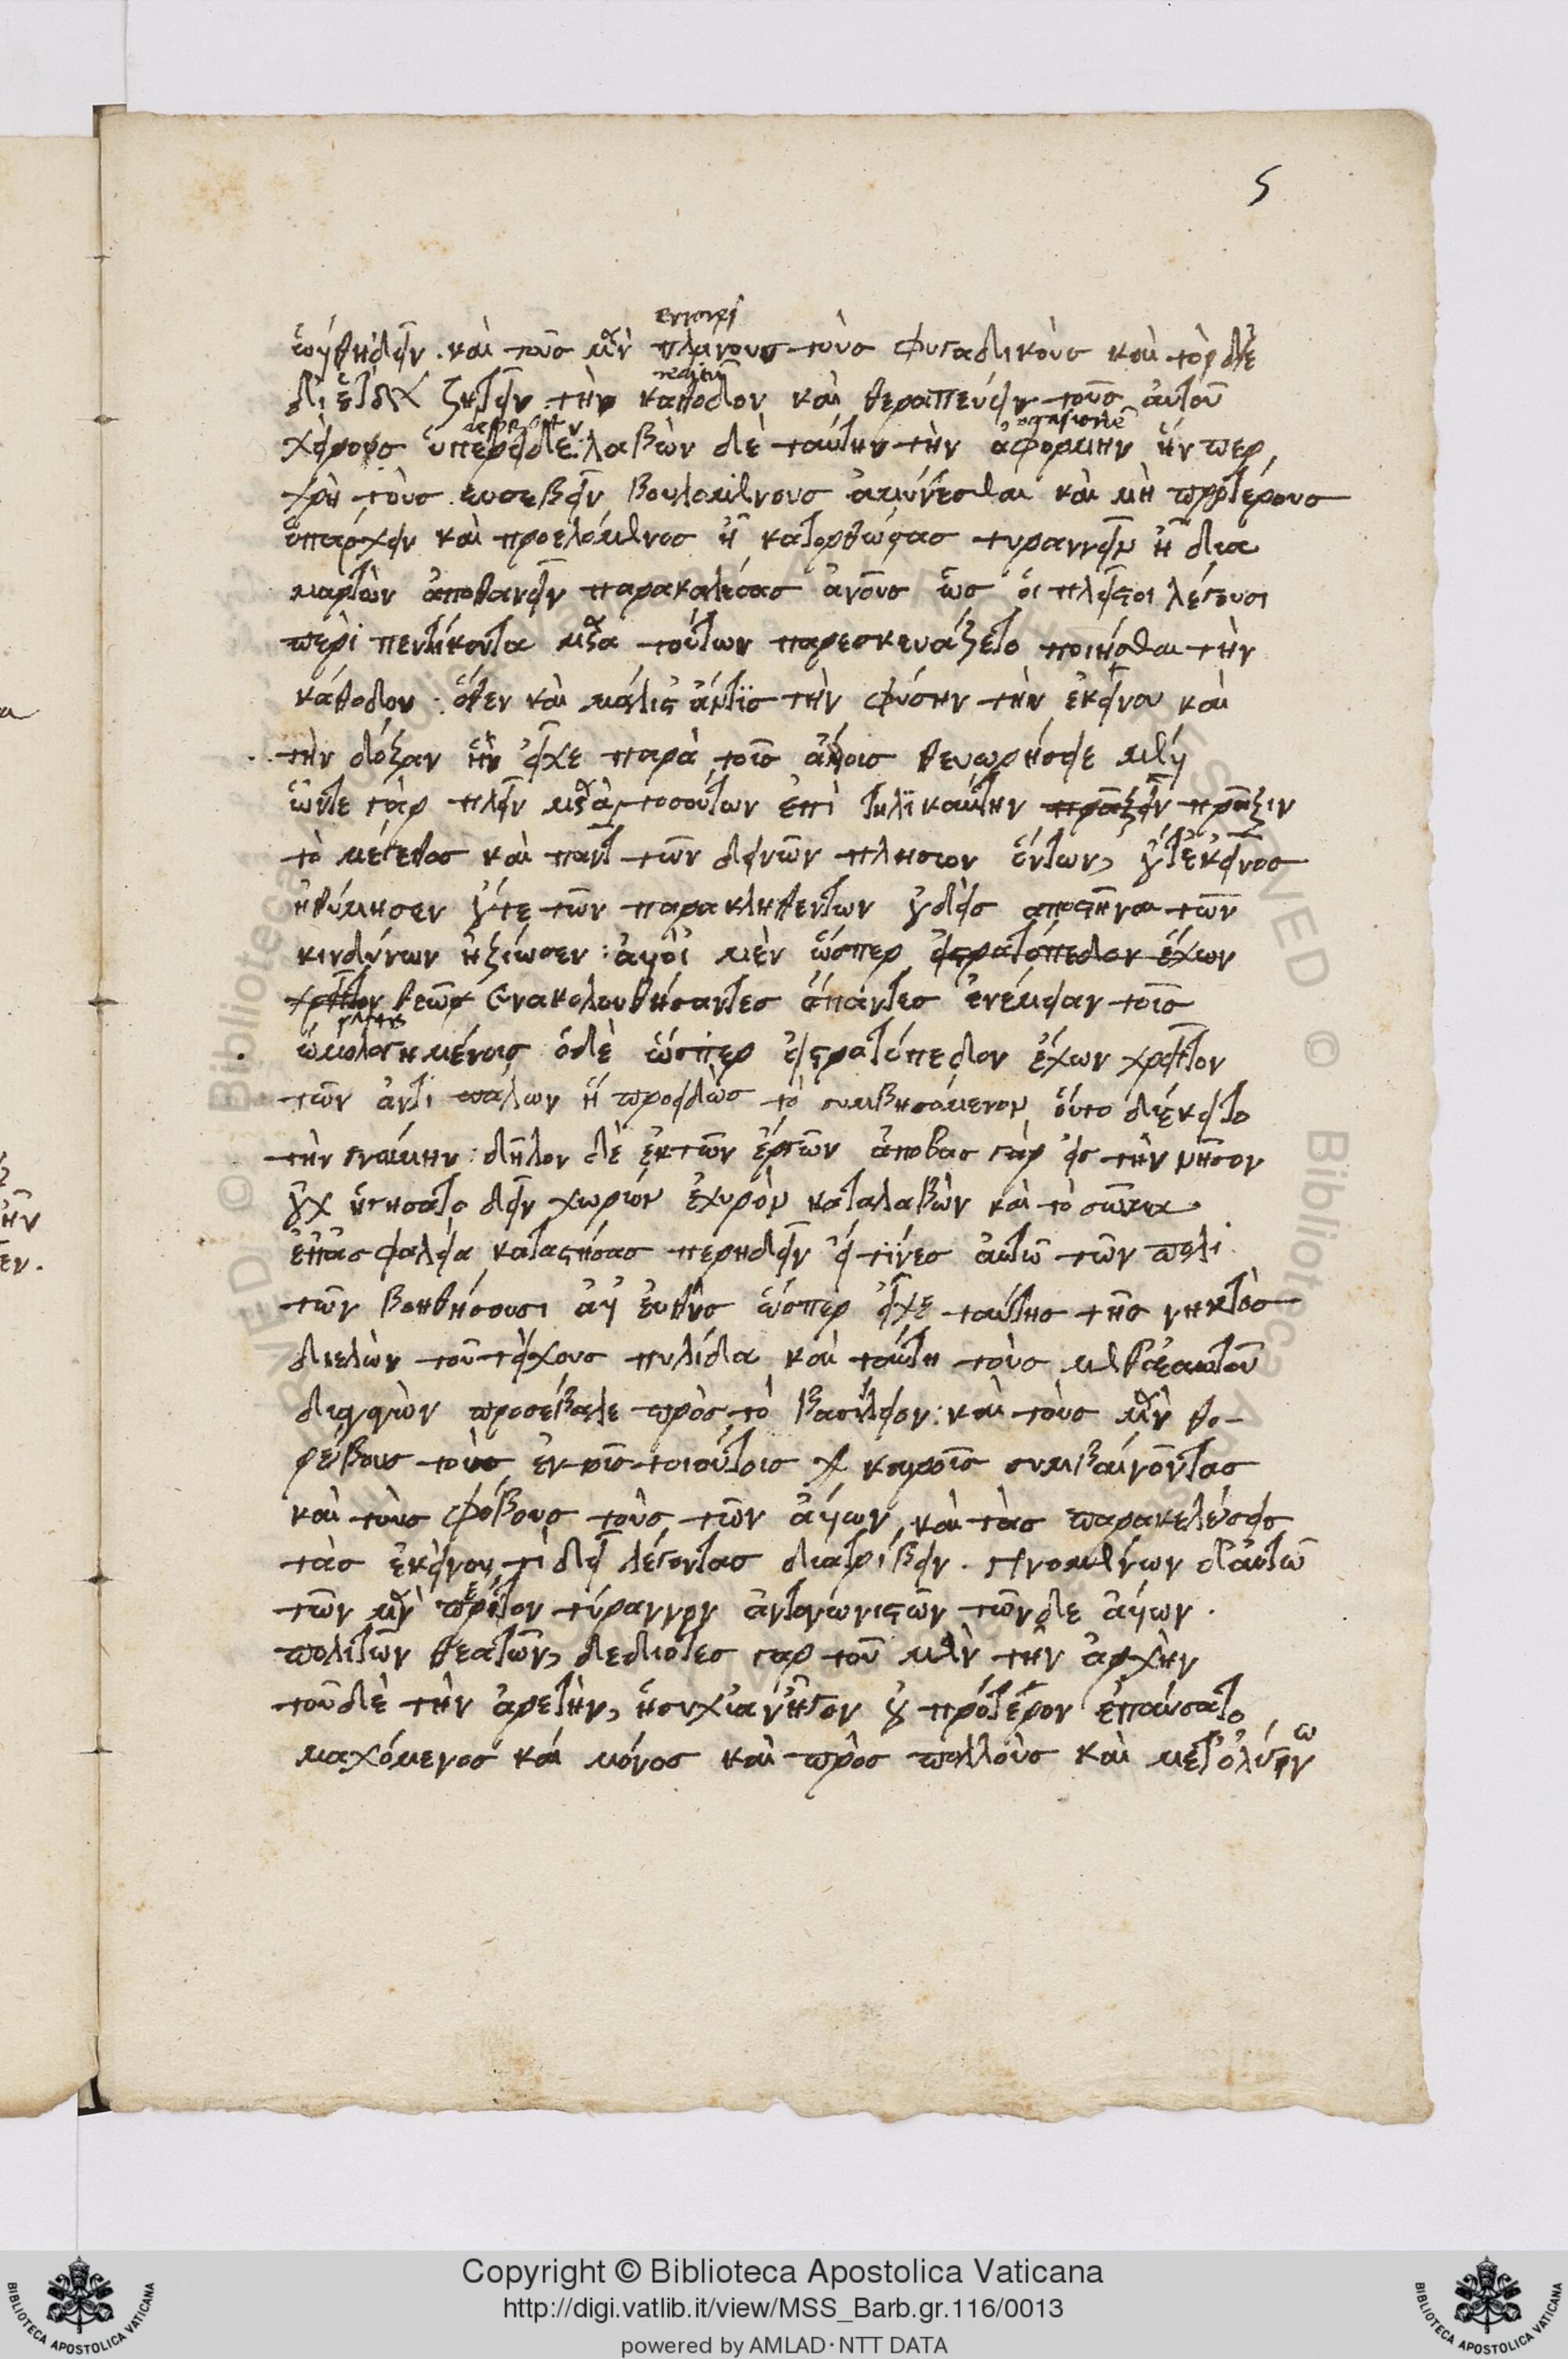 5
errori
ὠήθηδεῖν. καὶ τοῦσ μὲν πλάνους τοὺσ φυγαδικοὺσ καὶ τὸ δὲ
reditū
δι ἑτέρων ζητεῖν τὴν κάθοδον καὶ θεραπεύειν τοὺσ αὐτοῦ
occasionē
χείρους ὑπερεῖδε: λαβὼν δὲ ταύτην τὴν ἀφορμὴν ἥν περ
χρὴ τοὺσ ευσεβεῖν βουλομένουσ ἀμύνεσθαι καὶ μὴ προτέρουσ
ὑπάρχειν καὶ προελόμενοσ ἢ κατορθώσασ τυραννεῖν ἢ δια
μαρτὼν ἀποθανεῖν παρακαλέσασ ἀνοὺσ ὥσ οἱ πλεῖστοι λέγουσι
περὶ πεντήκοντα μετὰ τούτων παρεσκευάζετο ποιήσθαι τὴν
κάθοδον: ὅθεν καὶ μάλιστ ἄν τῒσ τὴν φύσην τὴν ἐκείνου καὶ
τὴν δόξαν ἣν εἶχε παρὰ τοῖσ ἄλλοισ θεωρήσειε μέλλ
ὤντε γὰρ πλεῖν μετὰ τοσούτων ἐπὶ τηλικαύτην πράξειν πρᾶξιν
τὸ μέγεθοσ καὶ πάντ τῶν δεινῶν πλησίον ὄντων, οὔτ ἐκεῖνοσ
ἠθύμησεν οὔτε τῶν παρακληθέντων οὐδεὶσ ἀποστῆναι τῶν
κινδύνων ἠξίωσεν: ἀλλ οἱ μὲν ὥσπερ στρατόπεδον ἔχων
κρεῖττον θεῶ συνακολουθήσαντεσ ἅπαντεσ ἐνέμειναν τοῖσ
ὡμολογημένοισ ὁδὲ ὥσπερ ἢ στρατόπεδον ἔχων κρεῖττον
τῶν ἀντι πάλων ἢ προειδὼσ τὸ συμβησόμενον οὕτο διέκειτο
τὴν γνώμην: δῆλον δὲ ἐκτῶν ἔργων ἀποβασ γὰρ εἰσ τὴν νῆσον
οὐχ ἡγησατο δεῖν χωρίον ἐχυρὸν καταλαβὼν καὶ τὸ σῶμα
ἐν ἀσφαλεία καταστήσασ περηδεῖν εἴ τινεσ αὐτῶ τῶν πολι
τῶν βοηθήσουσι ἀλλ ευθὺσ ὥσπερ εἶχε ταύτησ τῆσ νηκτὸσ
διελὼν τοῦ τείχουσ πυλίδα καὶ ταύτη τοὺσ μεθ ἑαυτοῦ
διαγαγὼν προσέβαλε πρὸσ τὸ βασίλειον: καὶ τοὺσ μὲν θο-
ρύβουσ τοὺσ ἐν τοῖσ τοιούτοισ καιροῖσ συμβαίνοντασ
καὶ τοὺσ φόβουσ τοὺσ τῶν ἄλλων καὶ τὰσ παρακελεύσεισ
τὰσ ἐκείνου τὶ δεῖ λέγοντασ διατρίβειν. γινομένων δ αὐτῶ
τῶν μὲν περὶ τὸν τύραννον ἀνταγωνιστῶν τῶν δε ἄλλων
πολιτῶν θεατῶν, δεδιότεσ γαρ τοῦ μὲν τὴν ἀρχὴν
τοῦδὲ τὴν ἀρετὴν, ἡσυχίαν ἦγον οὐ πρότερον ἐπαύσατο
μαχόμενοσ καὶ μόνοσ καὶ πρὸσ πολλοὺσ καὶ μετ ὀλίγων
Copyright © Biblioteca Apostolica Vaticana
http://digi.vatlib.it/view/MSS_Barb.gr.116/0013
powered by AMLAD·NTT DATA